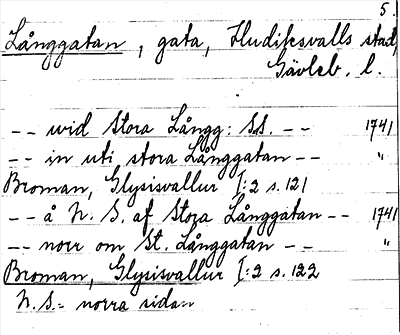 5.
Långgatan, gata, Hudiksvalls stad,
Gävleb. l.
-- wid Stora Långg: S.S. -- 1741
-- in uti stora Långgatan -- "
Broman, Glysisvallur I:2 s. 121
-- å N. S. af Stora Långgatan -- 1741
-- norr om St. Långgatan -- "
Broman, Glysisvallur I:2 s. 122
N.S. = norra sidan